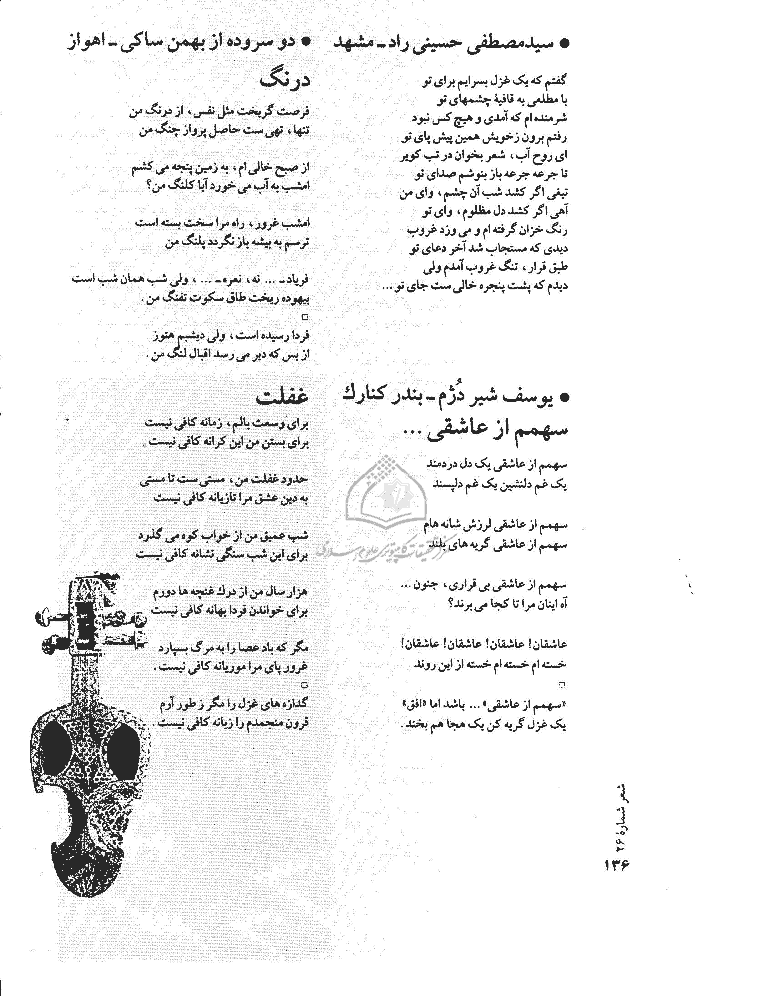 ● سیدمصطفی حسینی راد ـ مشهد
گفتم که یک غزل بسرایم برای تو
با مطلعی به قافیهٔ چشمهای تو
شرمنده ام که آمدی و هیچ کس نبود
رفتم برون زخویش همین پیش پای تو
ای روح آب، شعر بخوان در تب کویر
تا جرعه جرعه باز بنوشم صدای تو
تیغی اگر کشد شب آن چشم، وای من
آهی اگر کشد دل مظلوم، وای تو
رنگ خزان گرفته ام و می وزد غروب
دیدی که مستجاب شد آخر دعای تو
طبق قرار، تنگ غروب آمدم ولی
دیدم که پشت پنجره خالی ست جای تو...
● یوسف شیر دُژم ـ بندر کنارك
سهمم از عاشقی ...
سهمم از عاشقی یک دل دردمند
یک غم دلنشین یک غم دلپسند
سهمم از عاشقی لرزش شانه هام
سهمم از عاشقی گریه های بلند
سهمم از عاشقی بی قراری، جنون ...
آه اینان مرا تا کجا می برند؟
عاشقان! عاشقان! عاشقان! عاشقان!
خسته ام خسته ام خسته از این روند
□
«سهمم از عاشقی» ... باشد اما «افق»
یک غزل گریه کن یک هجا هم بخند.
● دو سروده از بهمن ساکی ـ اهواز
درنگ
فرصت گریخت مثل نفس، از درنگ من
تنها، تهی ست حاصل پرواز چنگ من
از صبح خالی ام، به زمین پنجه می کشم
امشب به آب می خورد آیا کلنگ من؟
امشب غرور، راه مرا سخت بسته است
ترسم به بیشه باز نگردد پلنگ من
فریاد ـ ... نه، نعره ـ ...، ولی شب همان شب است
بیهوده ریخت طاق سکوت تفنگ من.
□
فردا رسیده است، ولی دیشبم هنوز
از بس که دیر می رسد اقبال لنگ من.
غفلت
برای وسعت بالم، زمانه کافی نیست
برای بستن من این کرانه کافی نیست.
حدود غفلت من، مستی ست تا مستی
به دین عشق مرا تازیانه کافی نیست
شب عمیق من از خواب کوه می گذرد
برای این شب سنگی نشانه کافی نیست
هزار سال من از درك غنچه ها دورم
برای خواندن فردا بهانه کافی نیست
مگر که باد عصا را به مرگ بسپارد
غرور پای مرا موریانه کافی نیست.
□
گدازه های غزل را مگر ز طور آرم
قرون منجمدم را زبانه کافی نیست.
شعر شمارهٔ ۲۶
۱۳۶